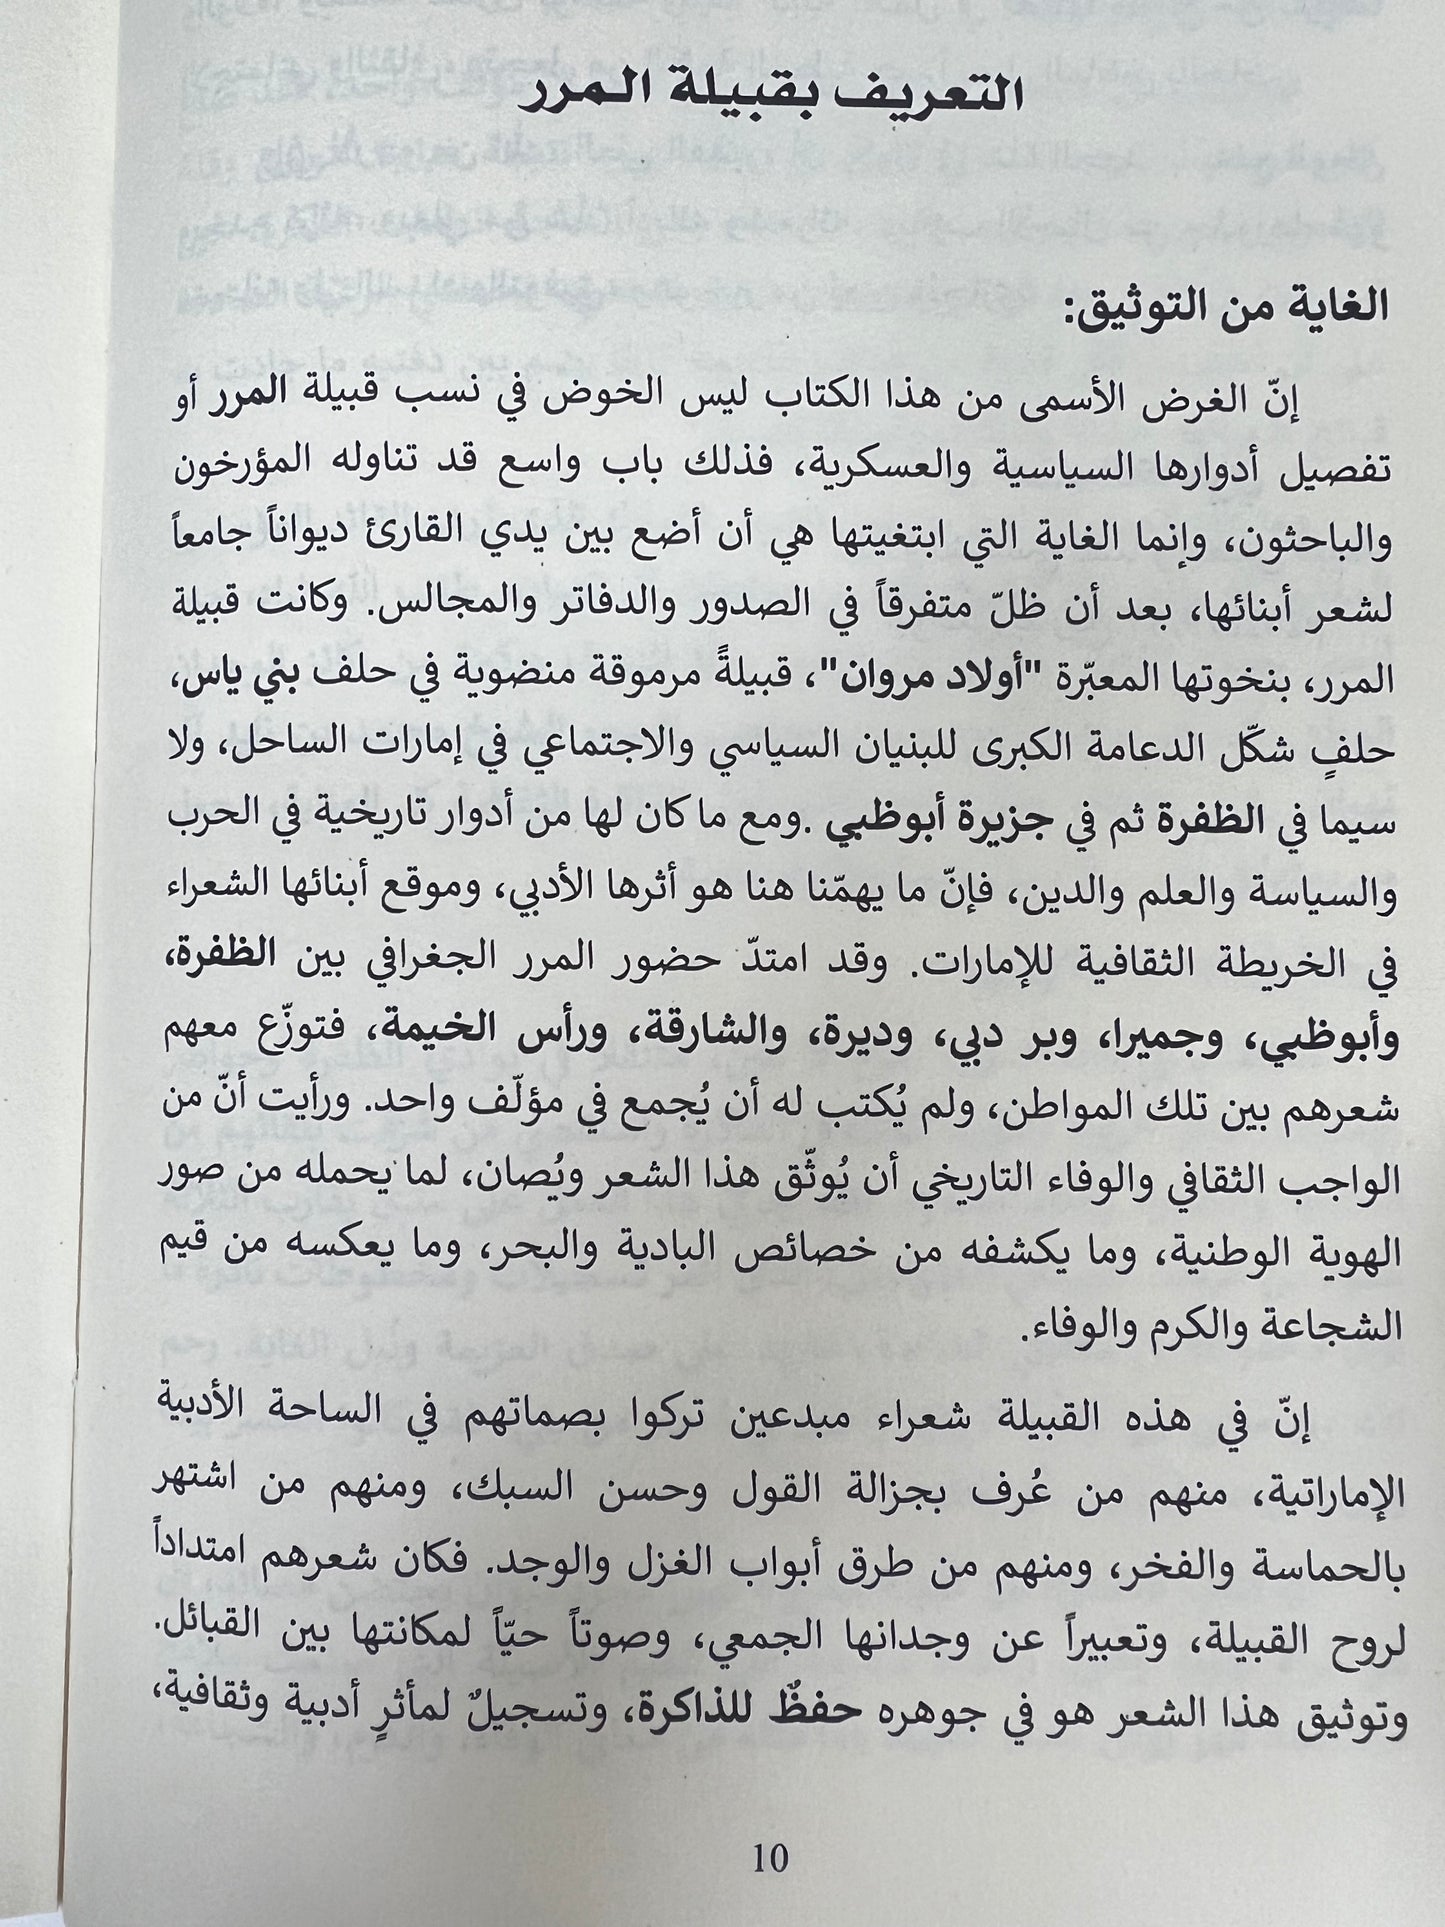 التعريف بقبيلة المرر
الغاية من التوثيق:
إنّ الغرض الأسمى من هذا الكتاب ليس الخوض في نسب قبيلة المرر أو
تفصيل أدوارها السياسية والعسكرية، فذلك باب واسع قد تناوله المؤرخون
والباحثون، وإنما الغاية التي ابتغيتها هي أن أضع بين يدي القارئ ديواناً جامعاً
لشعر أبنائها، بعد أن ظلّ متفرقاً في الصدور والدفاتر والمجالس. وكانت قبيلة
المرر، بنخوتها المعبّرة "أولاد مروان"، قبيلةً مرموقة منضوية في حلف بني ياس،
حلفٍ شكّل الدعامة الكبرى للبنيان السياسي والاجتماعي في إمارات الساحل، ولا
سيما في الظفرة ثم في جزيرة أبوظبي .ومع ما كان لها من أدوار تاريخية في الحرب
والسياسة والعلم والدين، فإنّ ما يهمّنا هنا هو أثرها الأدبي، وموقع أبنائها الشعراء
في الخريطة الثقافية للإمارات. وقد امتدّ حضور المرر الجغرافي بين الظفرة،
وأبوظبي، وجميرا، وبر دبي، وديرة، والشارقة، ورأس الخيمة، فتوزّع معهم
شعرهم بين تلك المواطن، ولم يُكتب له أن يُجمع في مؤلّف واحد. ورأيت أنّ من
الواجب الثقافي والوفاء التاريخي أن يُوثّق هذا الشعر ويُصان، لما يحمله من صور
الهوية الوطنية، وما يكشفه من خصائص البادية والبحر، وما يعكسه من قيم
الشجاعة والكرم والوفاء.
إنّ في هذه القبيلة شعراء مبدعين تركوا بصماتهم في الساحة الأدبية
الإماراتية، منهم من عُرف بجزالة القول وحسن السبك، ومنهم من اشتهر
بالحماسة والفخر، ومنهم من طرق أبواب الغزل والوجد. فكان شعرهم امتداداً
لروح القبيلة، وتعبيراً عن وجدانها الجمعي، وصوتاً حيّاً لمكانتها بين القبائل.
وتوثيق هذا الشعر هو في جوهره حفظٌ للذاكرة، وتسجيلٌ لمأثرٍ أدبية وثقافية،
10